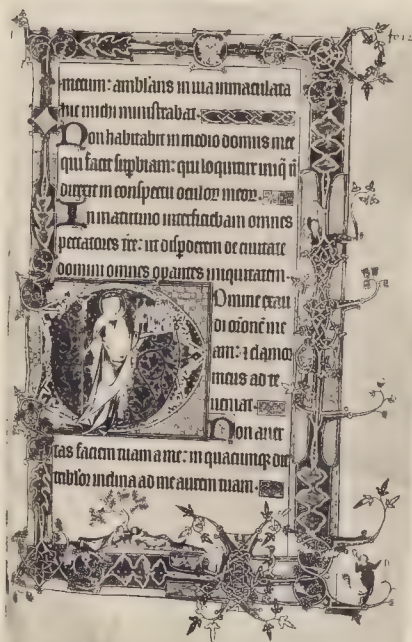 mecum: ambl'ans in uia inmaculata
hic michi ministrabat.
Non habitabit in medio domus mee
qui facit supbiam: qui loquitur iniq̄ n̄
direxit in conspectu oculoꝝ meoꝝ.
In matutino interficiebam omnes
peccatores tr̄e: ut dispderem de ciuitate
domini omnes opantes iniquitatem.
Domine exau
di or̄onē me
am: ⁊ clamor
meus ad te
ueniat.
Non auer
tas faciem tuam a me: in quacumqꝫ die
tribl'or inclina ad me aurem tuam.